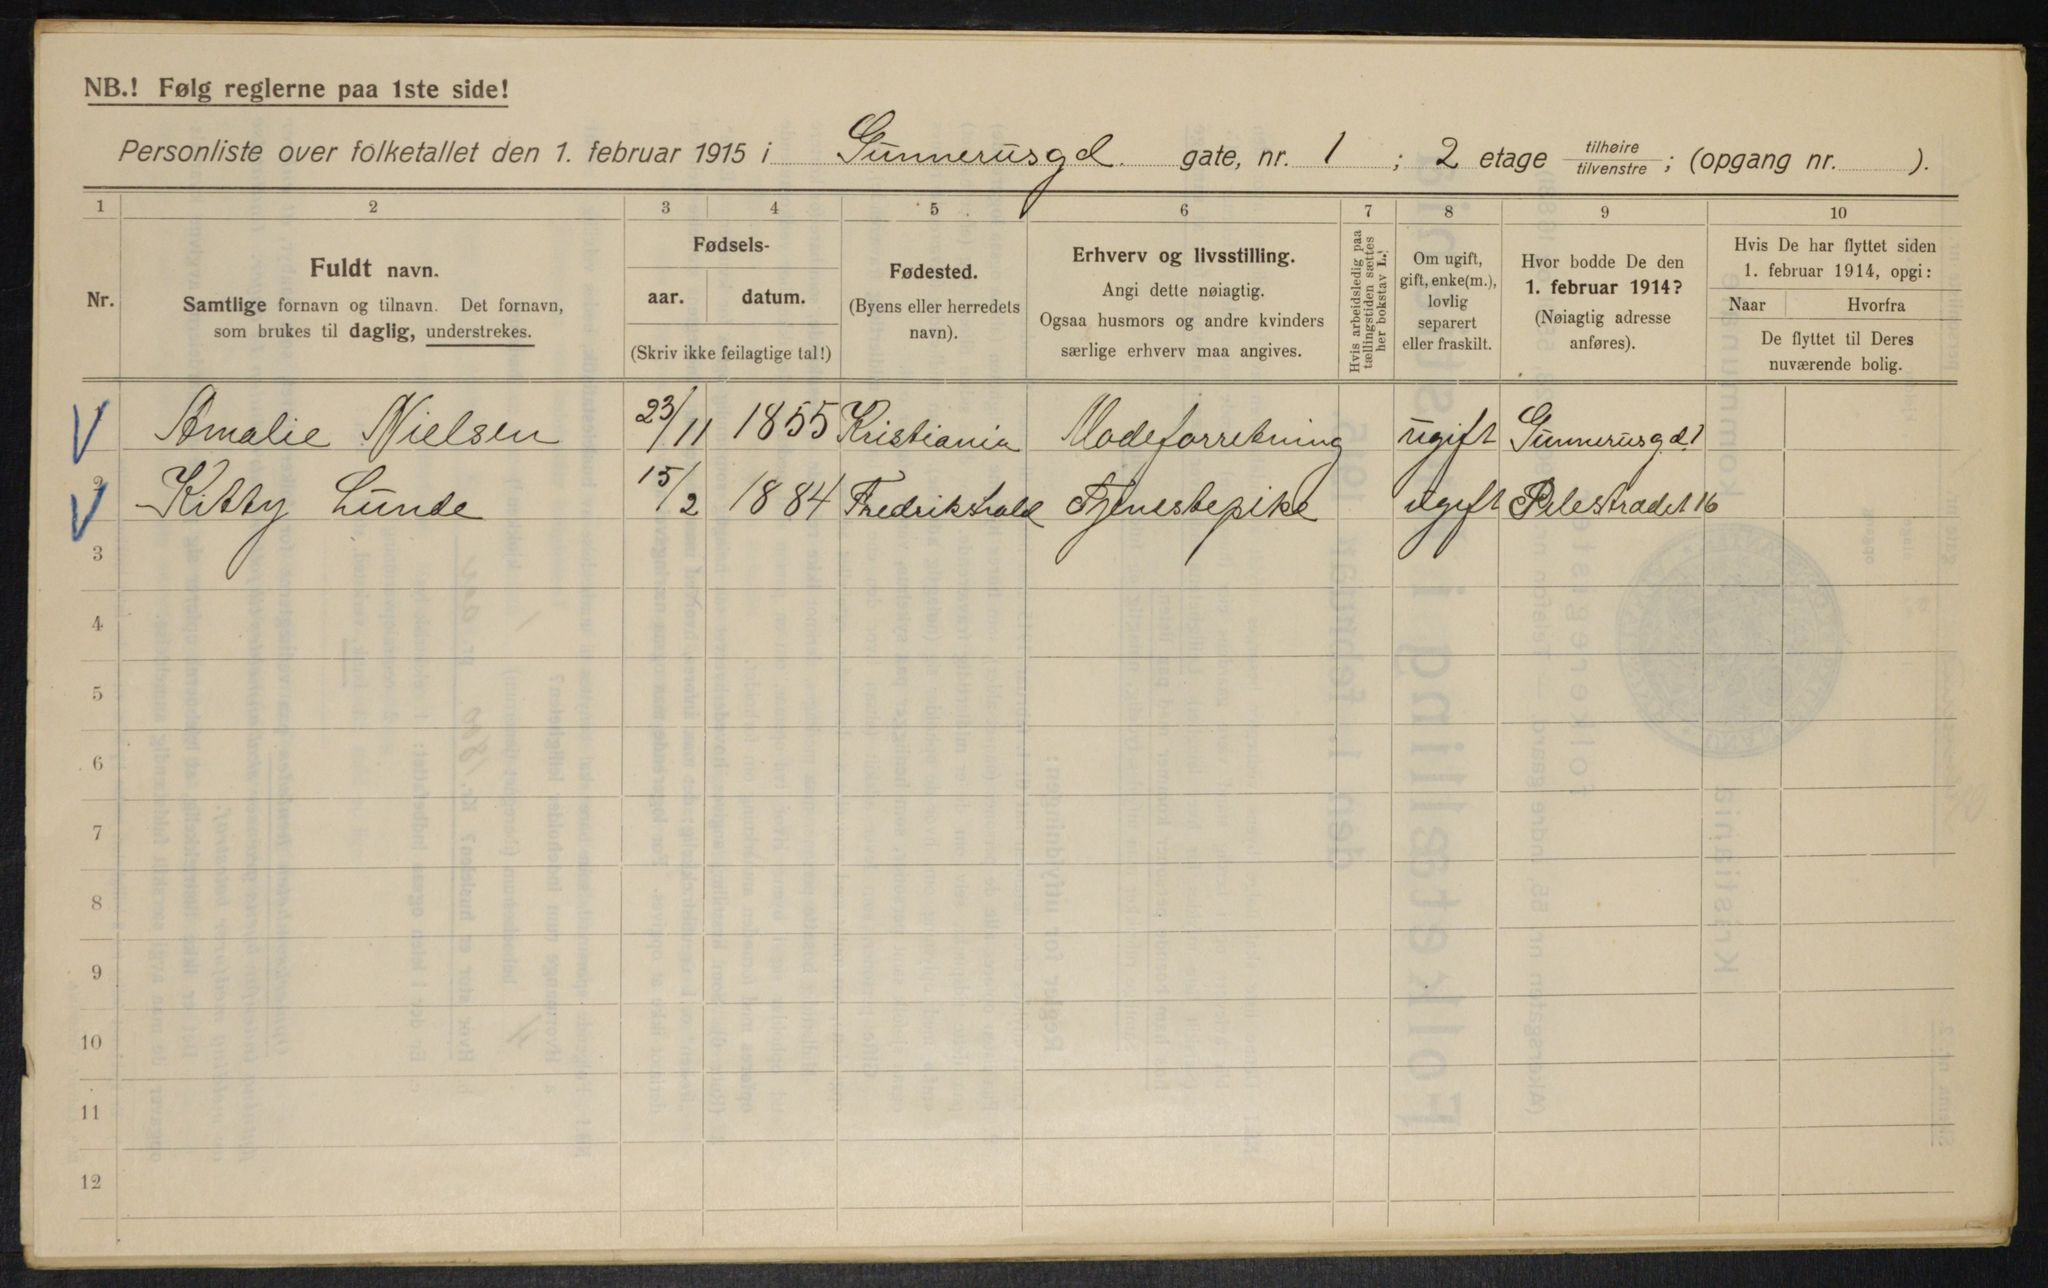 NB.! Følg reglerne paa 1ste side!
Personliste over folketallet den 1. februar 1915 i Gunnerusgd. gate, nr. 1 ; 2 etage tilhøire tilvenstre ; (opgang nr. ).
1 2 3 4 5 6 7 8 9 10
Nr.
Fuldt navn.
Samtlige fornavn og tilnavn. Det fornavn,
som brukes til daglig, understrekes.
Fødsels-
aar. datum.
(Skriv ikke feilagtige tal!)
Fødested.
(Byens eller herredets
navn).
Erhverv og livsstilling.
Angi dette nøiagtig.
Ogsaa husmors og andre kvinders
særlige erhverv maa angives.
Hvis arbeidsledig paa
tællingstiden sættes
her bokstav L.!
Om ugift,
gift, enke(m.),
lovlig
separert
eller fraskilt.
Hvor bodde De den
1. februar 1914?
(Nøiagtig adresse
anføres).
Hvis De har flyttet siden
1. februar 1914, opgi:
Naar Hvorfra
De flyttet til Deres
nuværende bolig.
Amalie Nielsen 23/11 1855 Kristiania Modeforretning ugift Gunnerusgd 1
2 Kitty Lunde 15/2 1884 Fredrikshald Tjenestepike ugift Pilestrædet 16
3
4
5
6
7
8
9
10
11
12